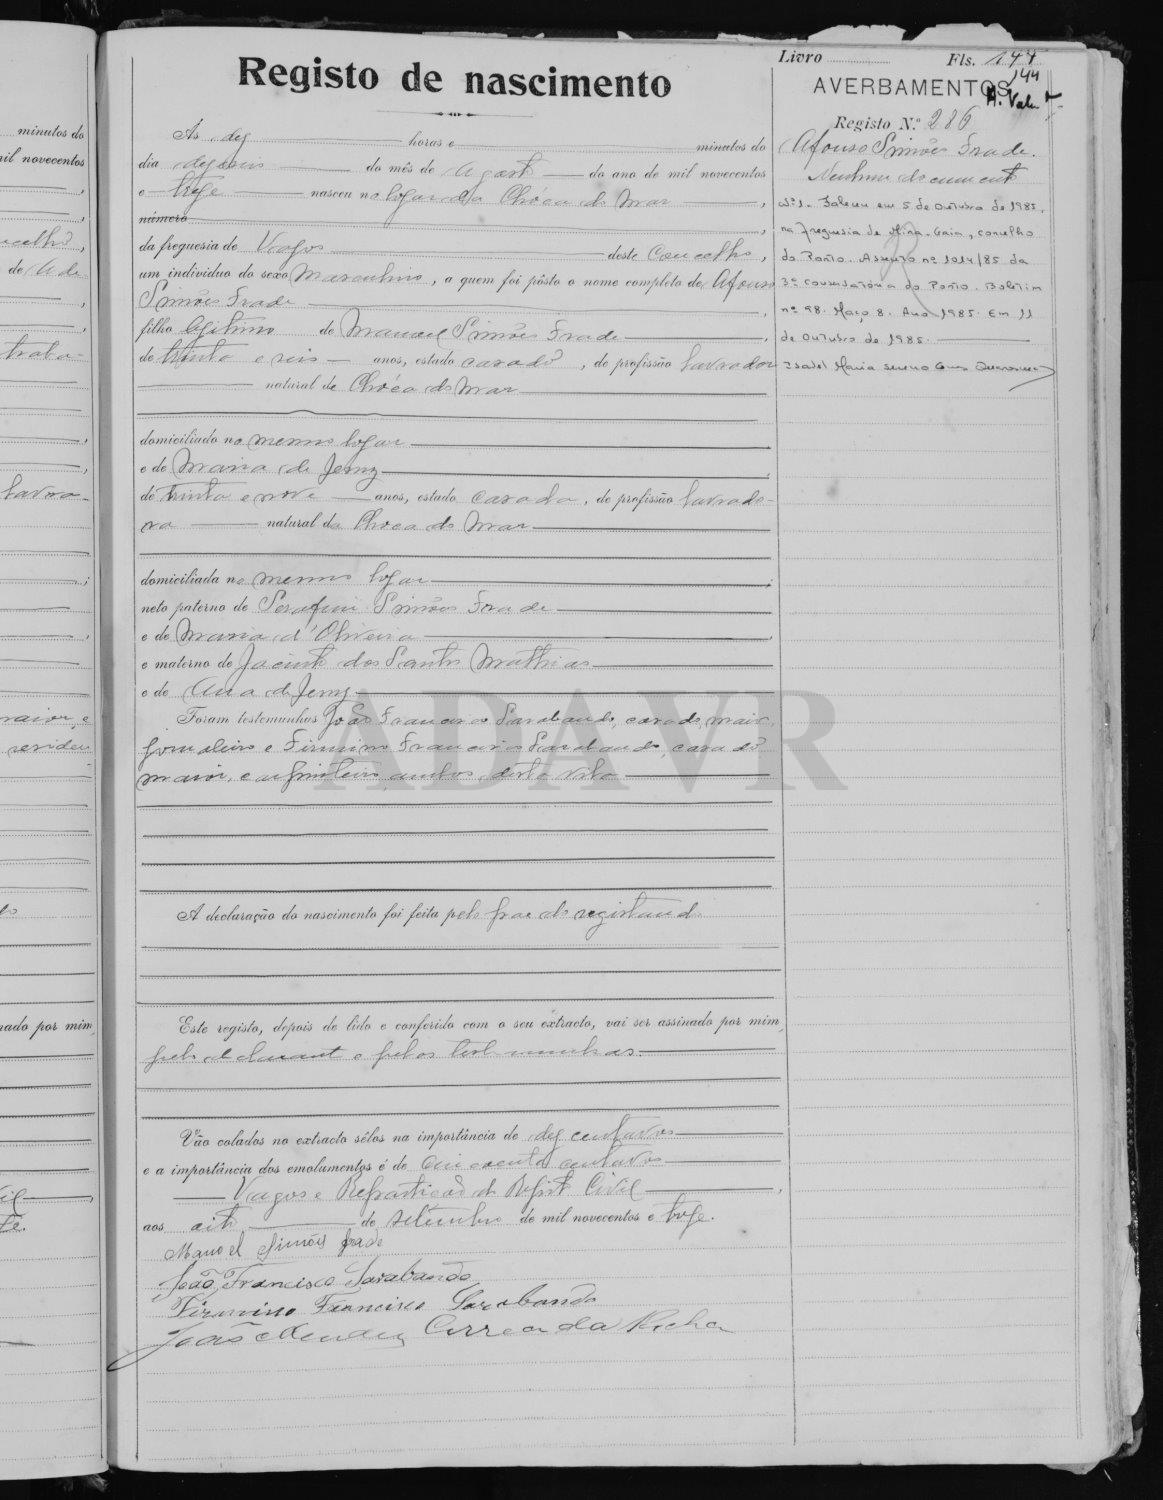 Registo de nascimento
Às dez horas e minutos do
dia dezaseis do mês de Agosto do ano de mil novecentos
e treze nasceu no logar da Chóca do Mar,
número
da freguesia de Vagos deste Concelho,
um individuo do sexo Masculino, a quem foi pôsto o nome completo de Afonso
Simões Frade
filho legitimo de Manoel Simões Frade
de trinta e seis anos, estado casado, de profissão lavrador
natural de Chóca do Mar
domiciliado no mesmo logar
e de Maria de Jesus
de trinta e nove anos, estado casada, de profissão lavrado-
ra natural da Chóca do Mar
domiciliada no mesmo logar
neto paterno de Serafim Simões Frade
e de Maria d'Oliveira
e materno de Jacinto dos Santos Mathias
e de Ana de Jesus
Foram testemunhas João Francisco Sarabando, casado, maior,
jornaleiro e Firmino Francisco Sarabando, casado
maior, carpinteiro, ambos desta vila
A declaração do nascimento foi feita pelo pae do registando
Este registo, depois de lido e conferido com o seu extracto, vai ser assinado por mim,
pelo declarante e pelas testemunhas.
Vão colados no extracto sêlos na importância de dez centavos
e a importância dos emolumentos é de cincoenta centavos
Vagos e Repartição do Registo Civil,
aos oito de setembro de mil novecentos e treze.
Manoel Simões Frade
João Francisco Sarabando
Firmino Francisco Sarabando
João Mendes Correa da Rocha
Livro Fls. 144
144
AVERBAMENTOS
Registo N.º 286
Afonso Simões Frade.
Nenhum documento
Nº1. Faleceu em 5 de Outubro de 1985,
na freguesia de , concelho
do Porto. Assento nº 1014/85 da
3ª Conservatória do Porto. Boletim
nº 98. Maço 8. Ano 1985. Em 11
de Outubro de 1985.
Isabel Maria
ADAVR
minutos do
mil novecentos
concelho,
traba-
lavra-
maior, e
nado por mim,